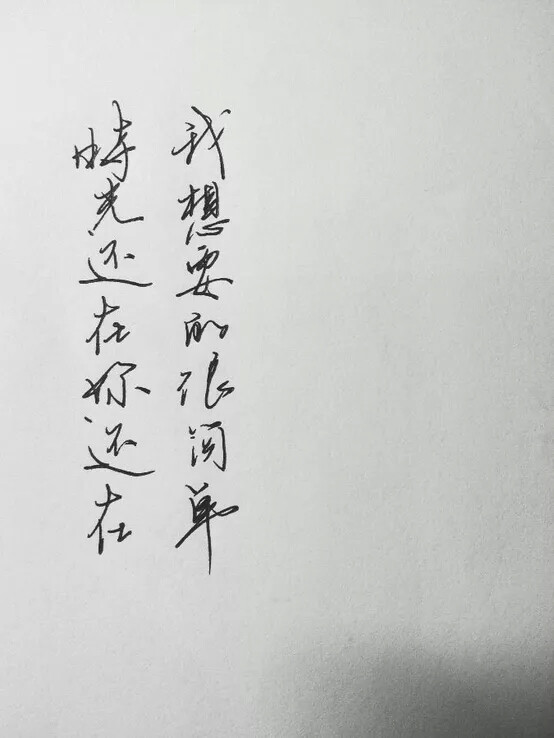 我想要的很简单
時光还在你还在